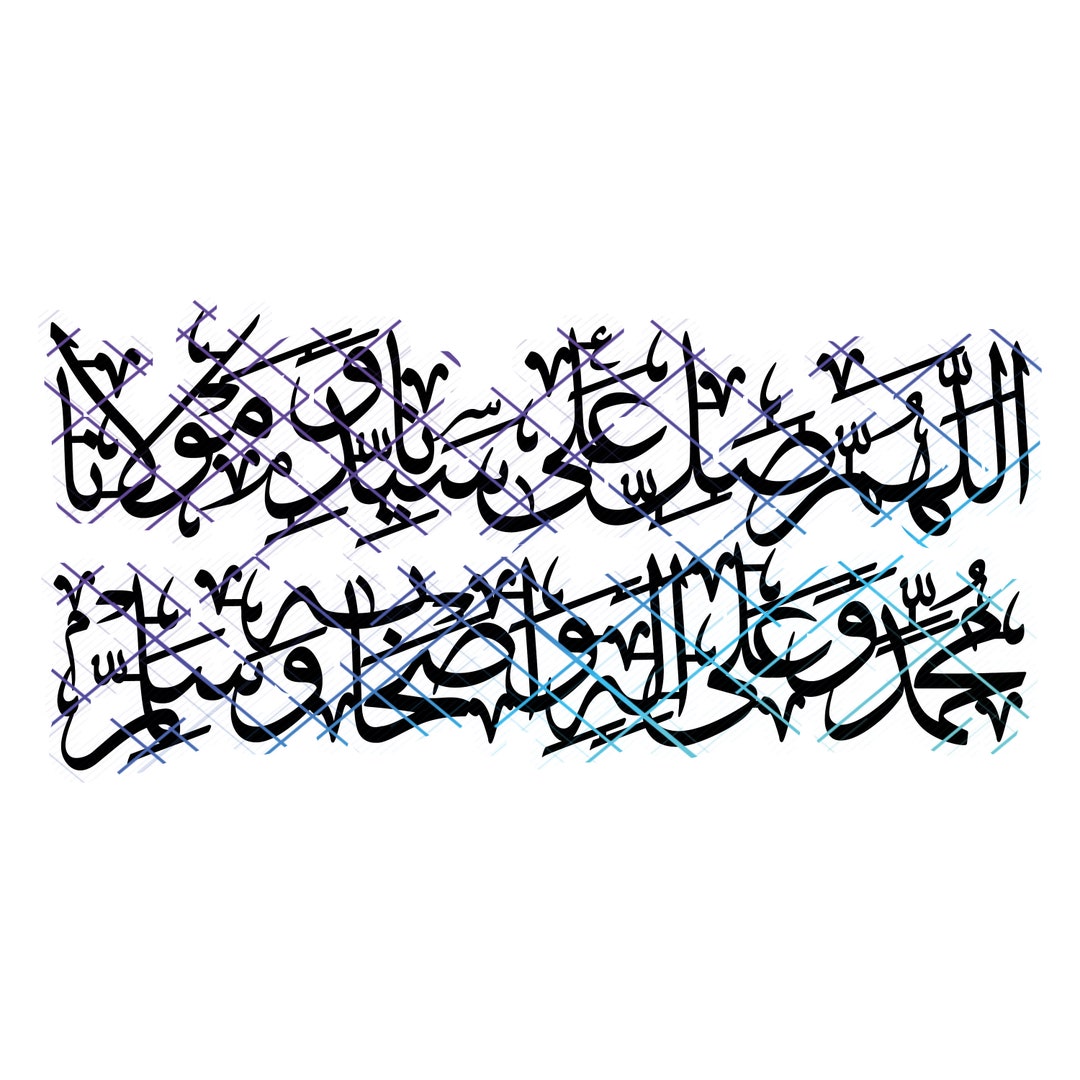 اللهم صل على سيدنا ومولانا
محمد وعلى اله واصحابه وسلم